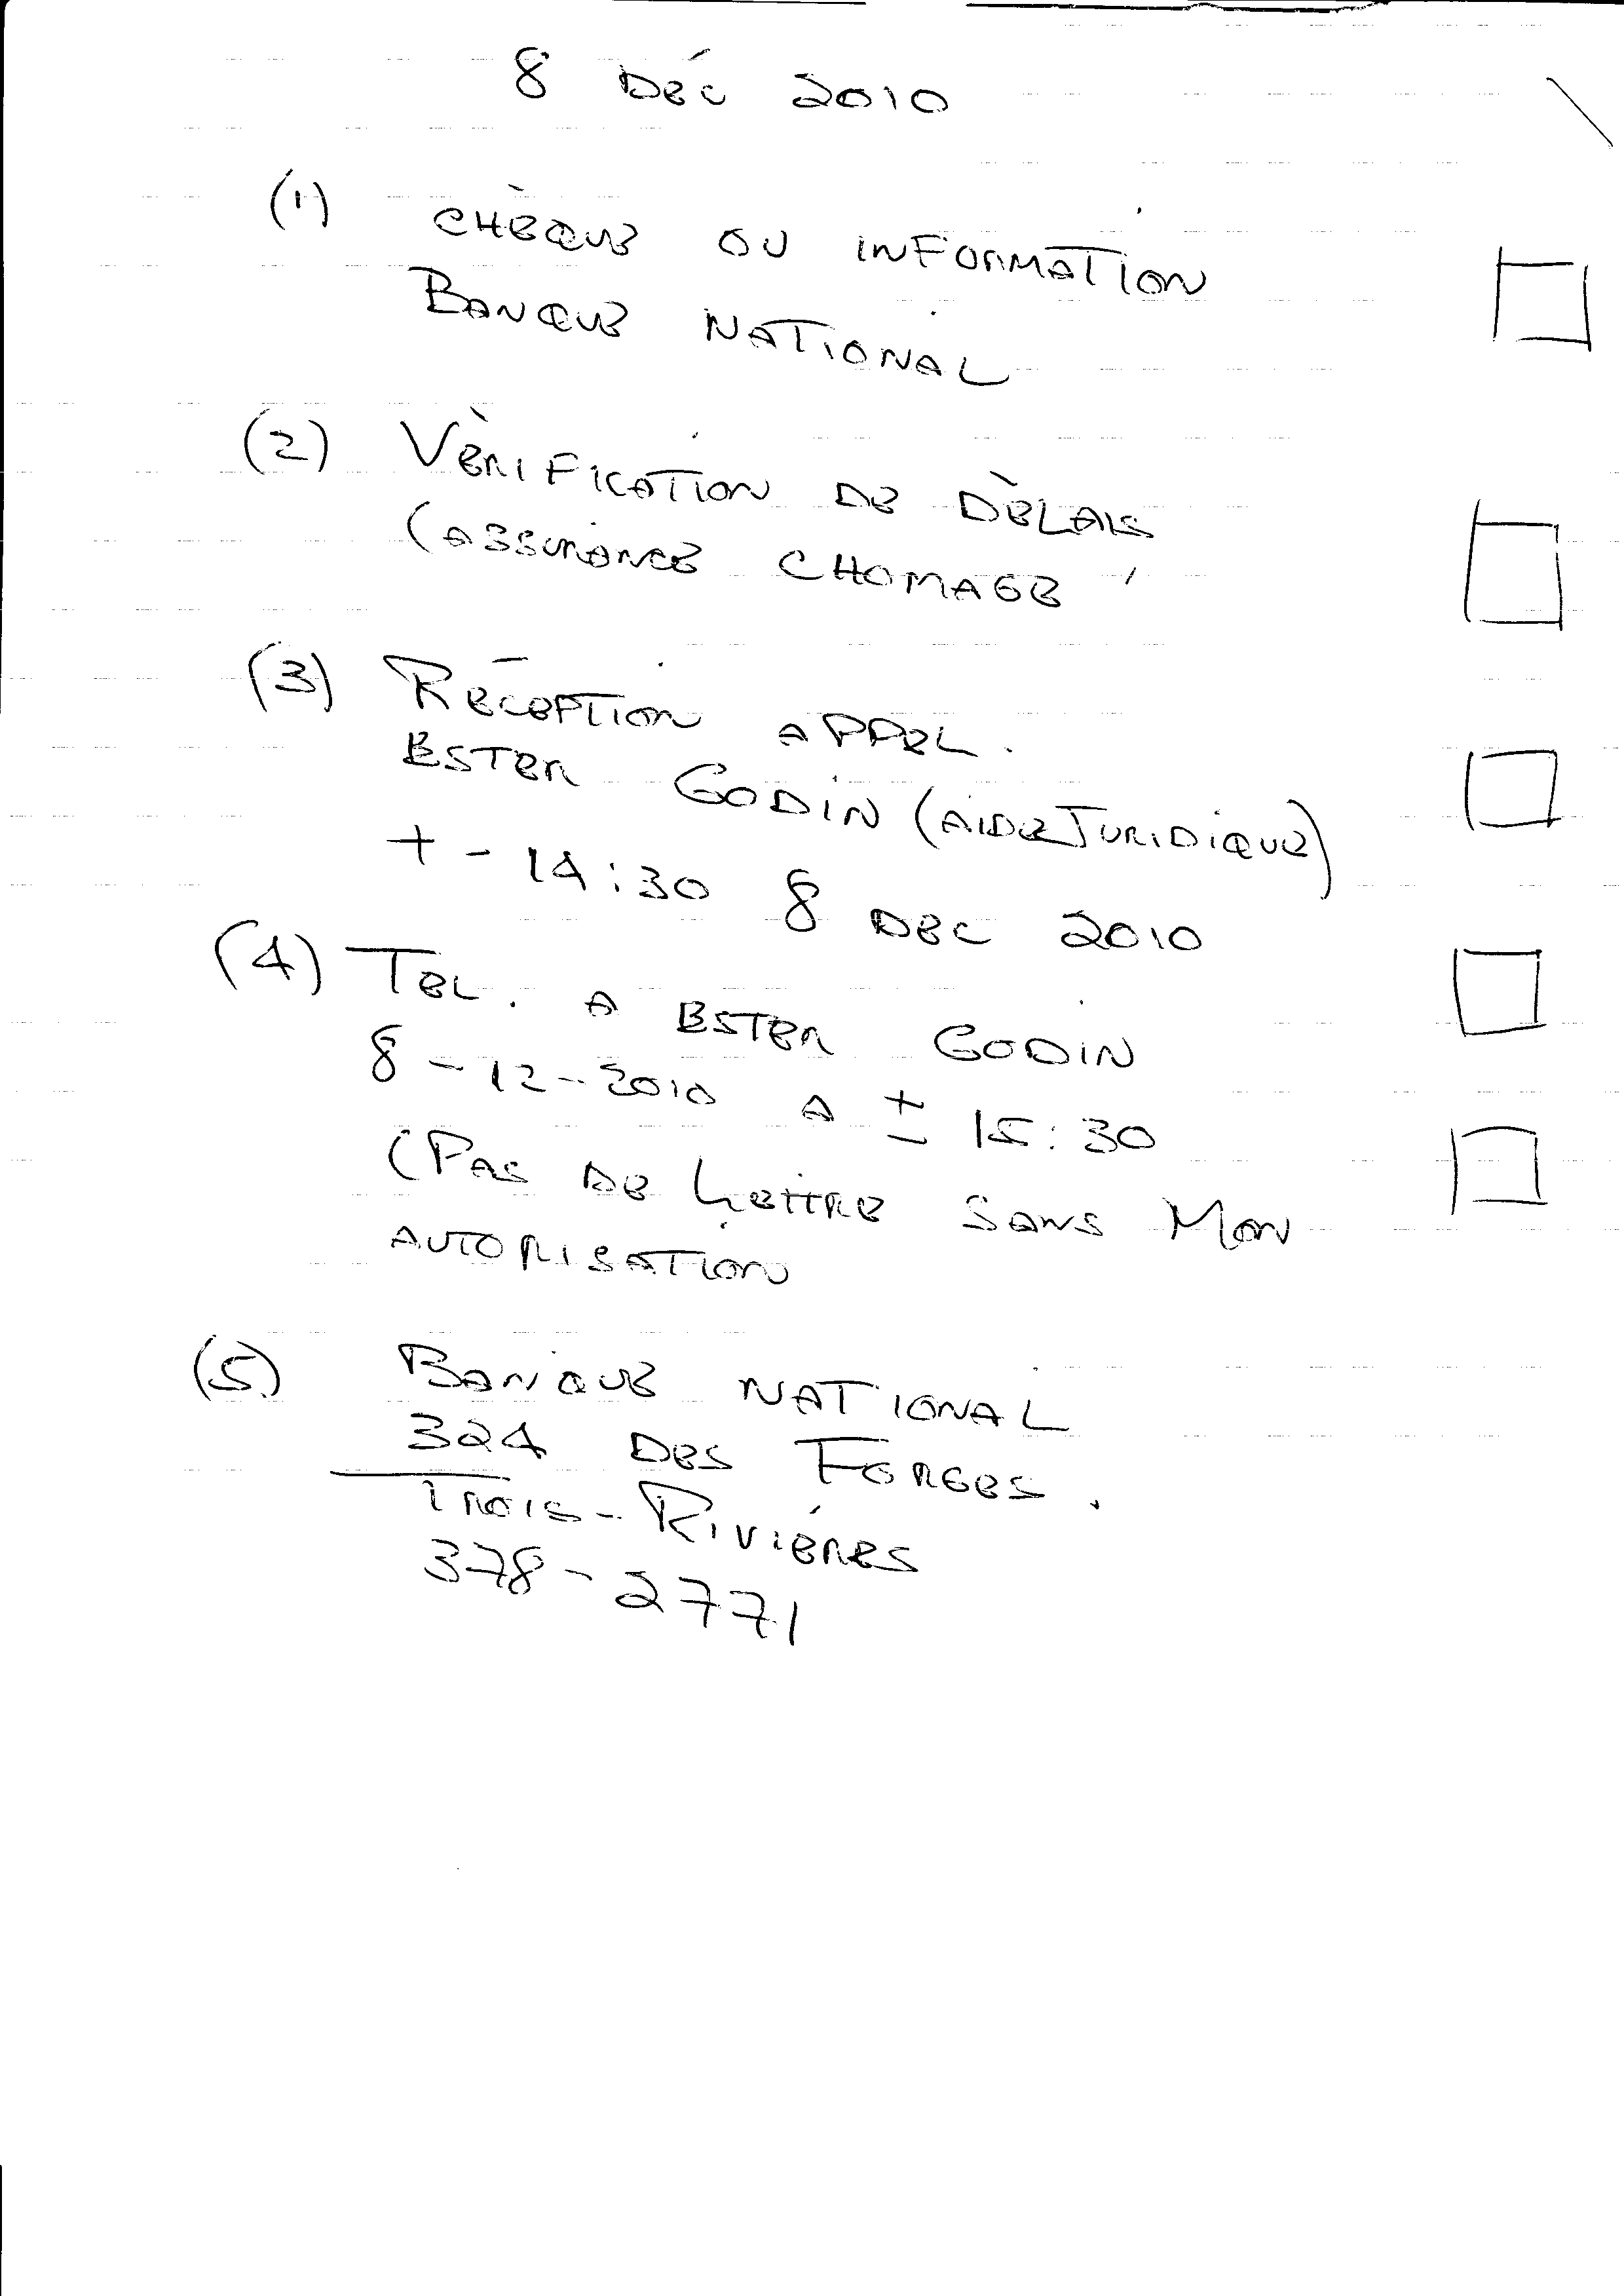 8 DÉC 2010
(1) CHÈQUE OU INFORMATION
BANQUE NATIONAL
(2) VÈRIFICATION DE DÈLAIS
(ASSURANCE CHOMAGE
(3) RÉCEPTION APPEL.
ESTER GODIN (AIDE JURIDIQUE)
+ - 14:30 8 DEC 2010
(4) TEL. A ESTER GODIN
8-12-2010 A ± 15:30
(PAS DE LETTRE SANS MON
AUTORISATION
(5) BANQUE NATIONAL
324 DES FORGES.
TROIS-RIVIÉRES
378-2771